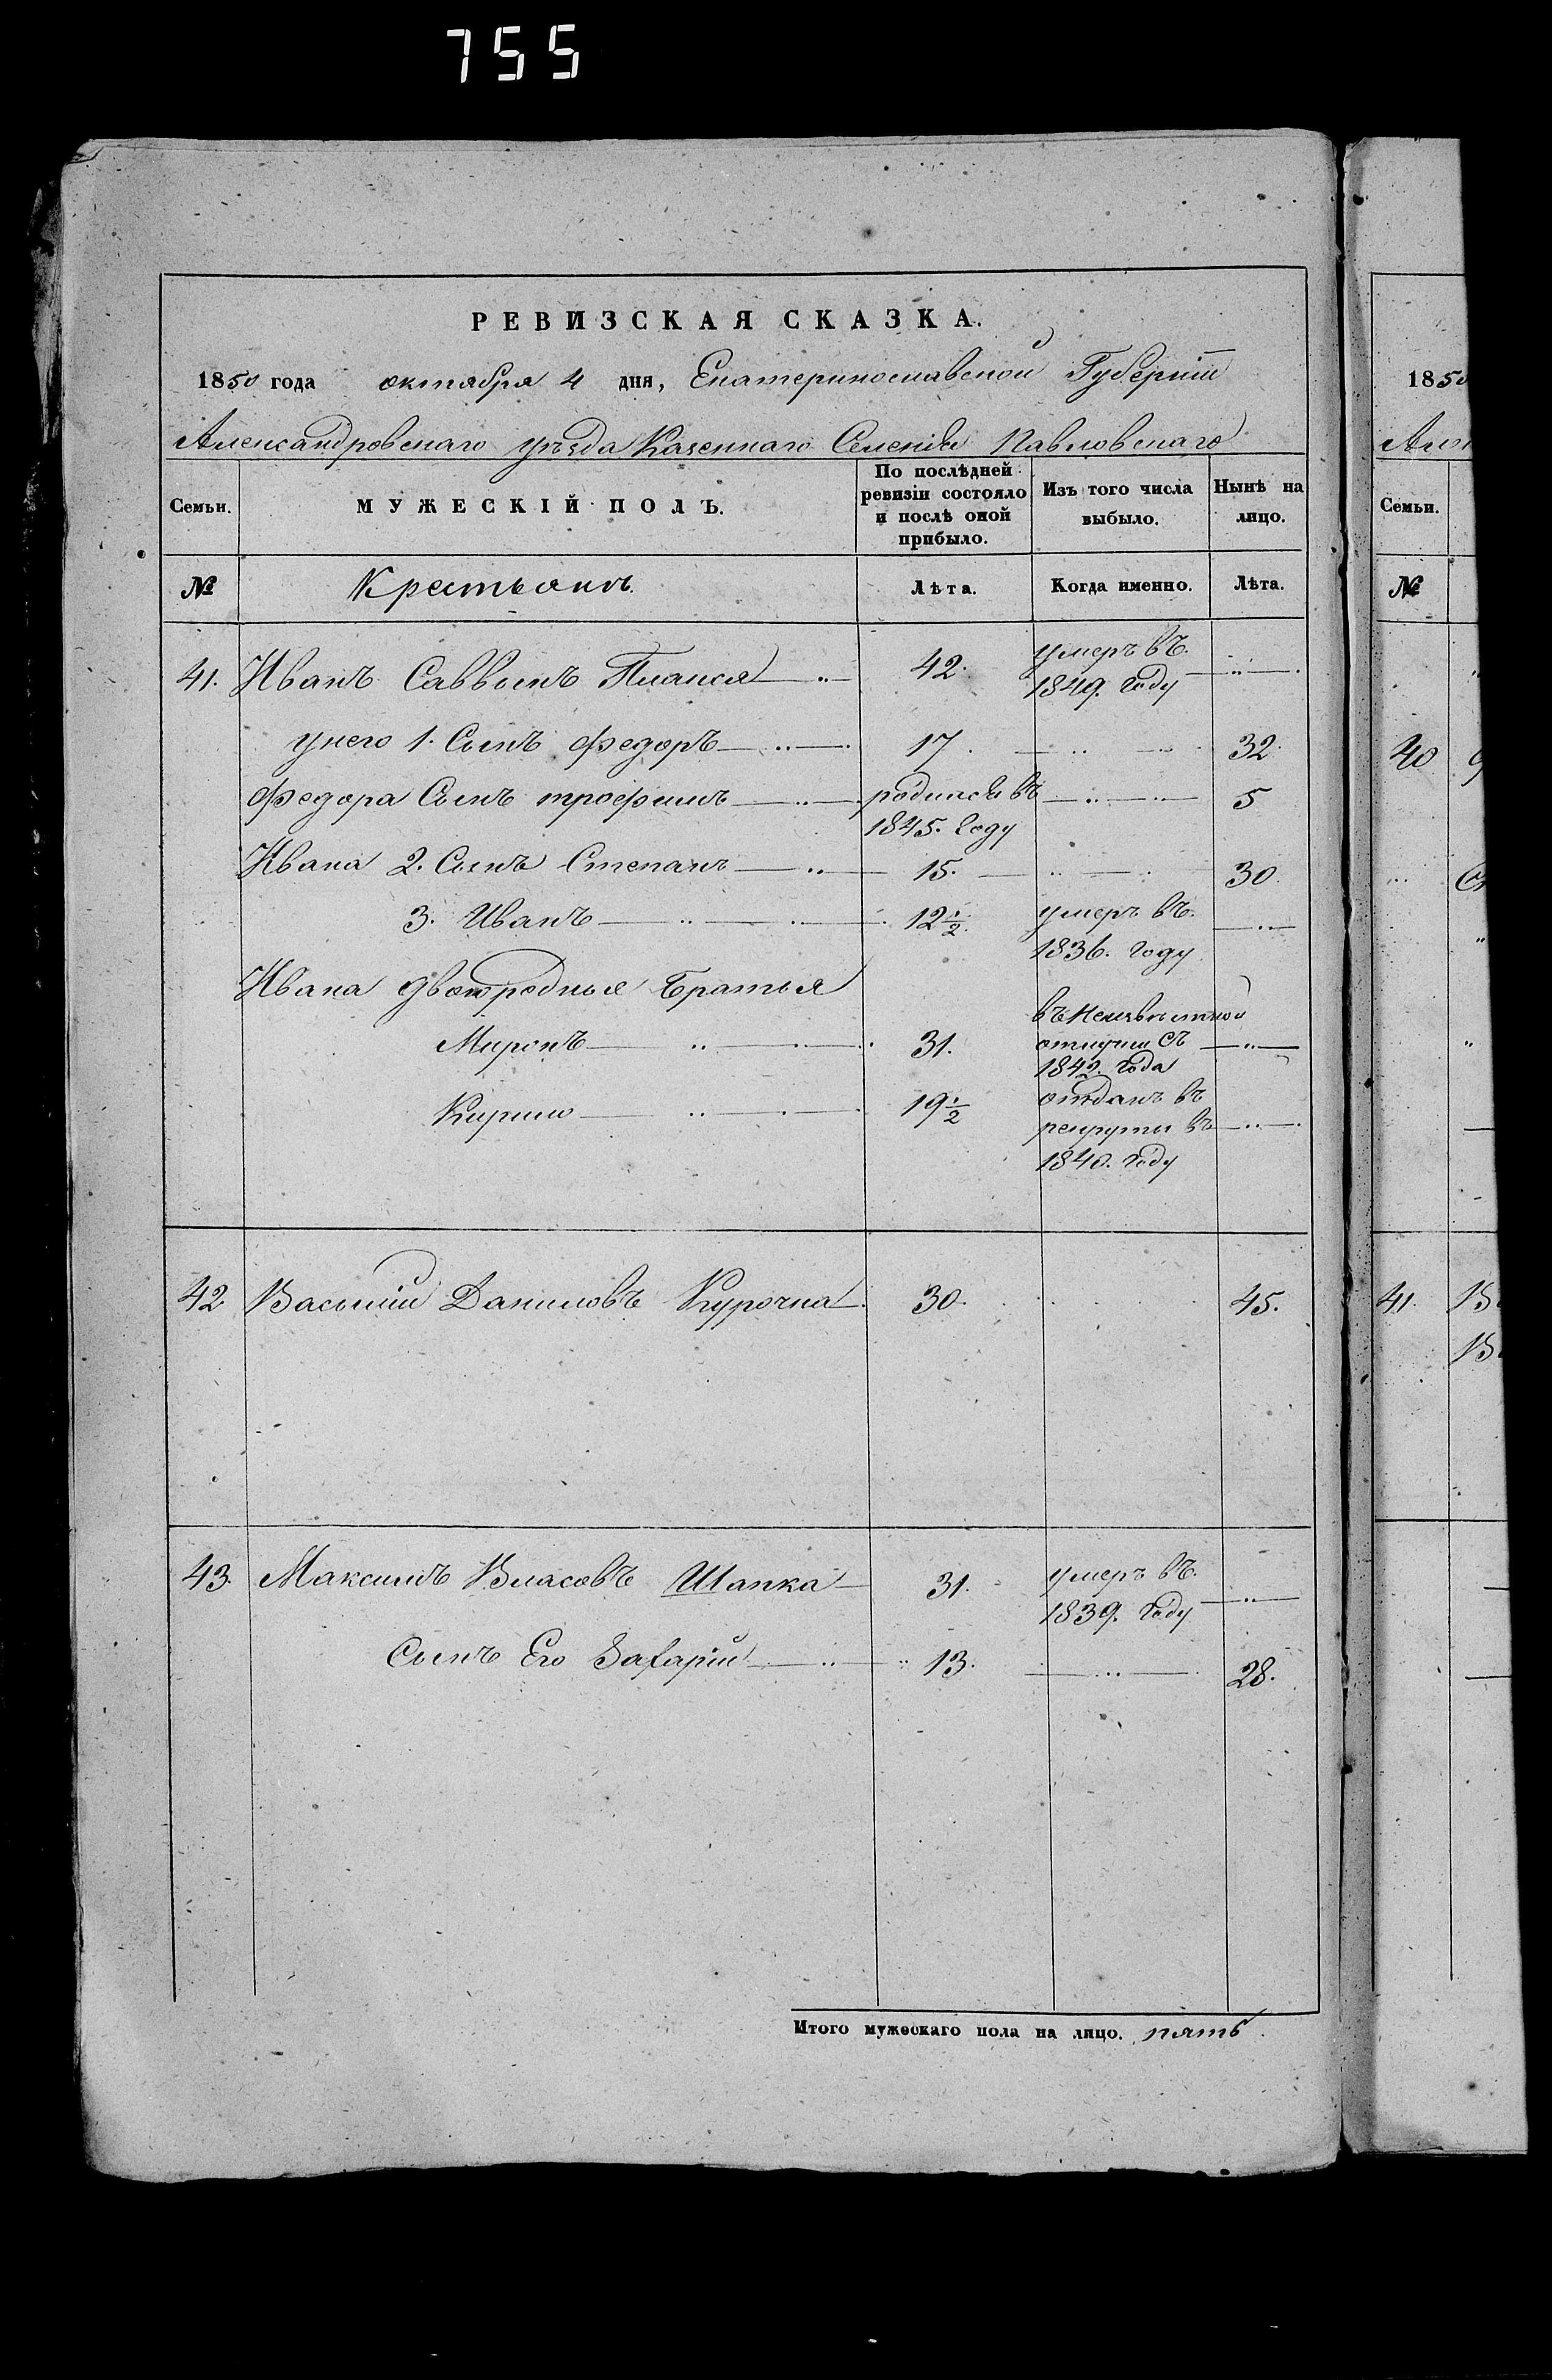 755
РЕВИЗСКАЯ СКАЗКА.
1850 года октября 4 дня, Екатеринославской Губерніи
Александровскаго уѣзда Казеннаго Селенія Павловскаго
Семьи. МУЖЕСКІЙ ПОЛЪ. По послѣдней ревизіи состояло и послѣ оной прибыло. Изъ того числа выбыло. Нынѣ на лицо.
№ Крестьянъ. Лѣта. Когда именно. Лѣта.
41. Иванъ Саввинъ 42. умеръ въ 1849. году
у него 1. Сынъ Федоръ 17. 32.
Федора Сынъ трофимъ родился въ 1845. году 5
Ивана 2. Сынъ Степанъ 15. 30.
3. Иванъ 12 1/2. умеръ въ 1836. году
Ивана двоюродные Братья
Миронъ 31. въ неизвѣстной отлучки съ 1842. года
Кирило 19 1/2 отданъ въ рекруты въ 1840. году
42 Василій Даниловъ Курочка 30. 45.
43. Максимъ Власовъ Шапка 31. умеръ въ 1839. году
Сынъ Его Захарій 13. 28.
Итого мужескаго пола на лицо. пять
1850
Семьи.
№
40
41.